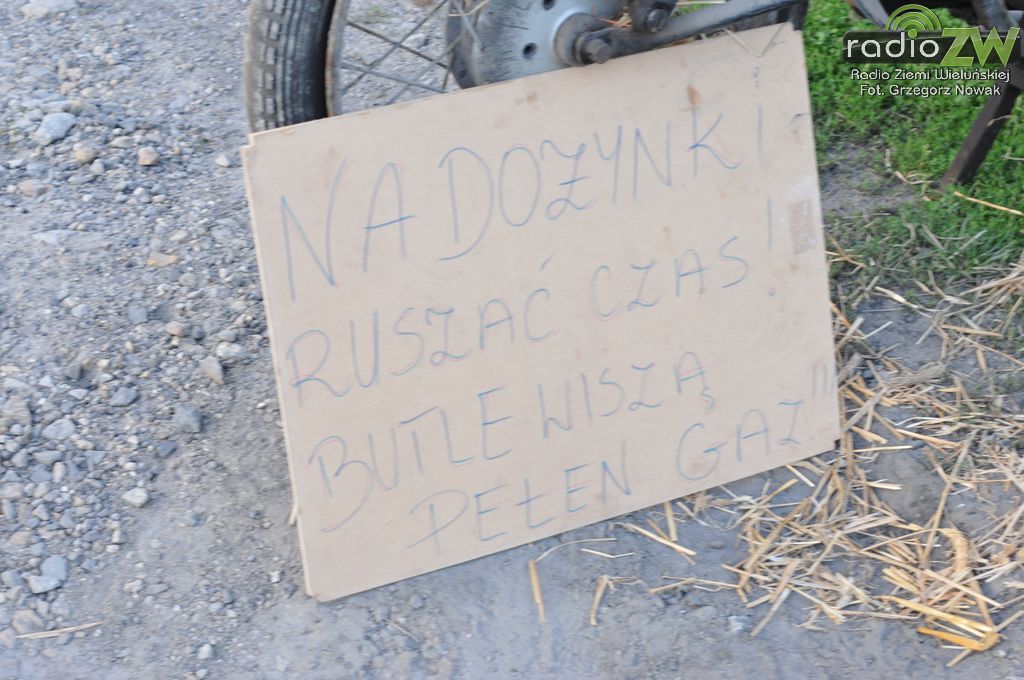 radioZW
Radio Ziemi Wieluńskiej
Fot. Grzegorz Nowak
NA DOŻYNKI!
RUSZAĆ CZAS!
BUTLE WISZĄ
PEŁEN GAZ!!!